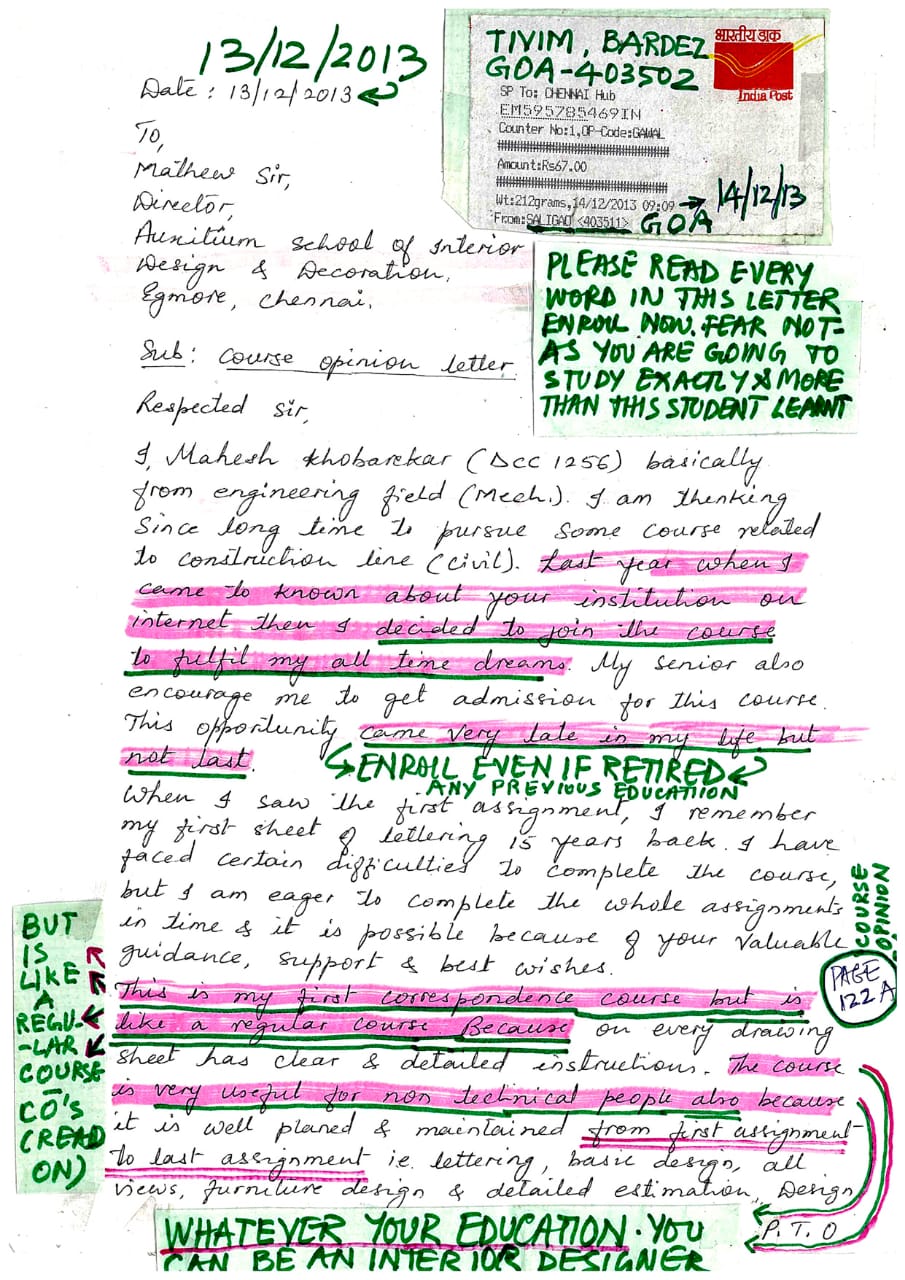 13/12/2013
Date : 13/12/2013
To,
Mathew Sir,
Director,
Auxitium school of Interior
Design & Decoration,
Egmore, Chennai.
TIVIM, BARDEZ
GOA-403502
भारतीय डाक
India Post
SP To: CHENNAI Hub
EM595785469IN
Counter No:1,OP-Code:GAWAL
Amount:Rs67.00
Wt:212grams,14/12/2013 09:09
14/12/13
From:SALIGAO <403511>
GOA
PLEASE READ EVERY
WORD IN THIS LETTER
ENROLL NOW. FEAR NOT-
AS YOU ARE GOING TO
STUDY EXACTLY & MORE
THAN THIS STUDENT LEARNT
Sub: Course opinion letter.
Respected sir,
I, Mahesh Khobarekar (DCC 1256) basically
from engineering field (Mech.). I am thinking
Since long time to pursue some course related
to construction line (civil). Last year when I
came to known about your institution on
internet then I decided to join the course
to fulfil my all time dreams. My senior also
encourage me to get admission for this course.
This opportunity came very late in my life but
not last.
ENROLL EVEN IF RETIRED
ANY PREVIOUS EDUCATION
When I saw the first assignment, I remember
my first sheet of lettering 15 years back. I have
faced certain difficulties to complete the course,
but I am eager to complete the whole assignments
in time & it is possible because of your valuable
guidance, support & best wishes.
COURSE
OPINION
PAGE
122 A
BUT
IS
LIKE
A
REGU-
-LAR
COURSE
-
CO'S
(READ
ON)
This is my first correspondence course but is
like a regular course Because on every drawing
sheet has clear & detailed instructions. The course
is very useful for non technical people also because
it is well planed & maintained from first assignment
to last assignment ie. lettering, basic design, all
views, furniture design & detailed estimation, Design
P.T.O
WHATEVER YOUR EDUCATION. YOU
CAN BE AN INTERIOR DESIGNER